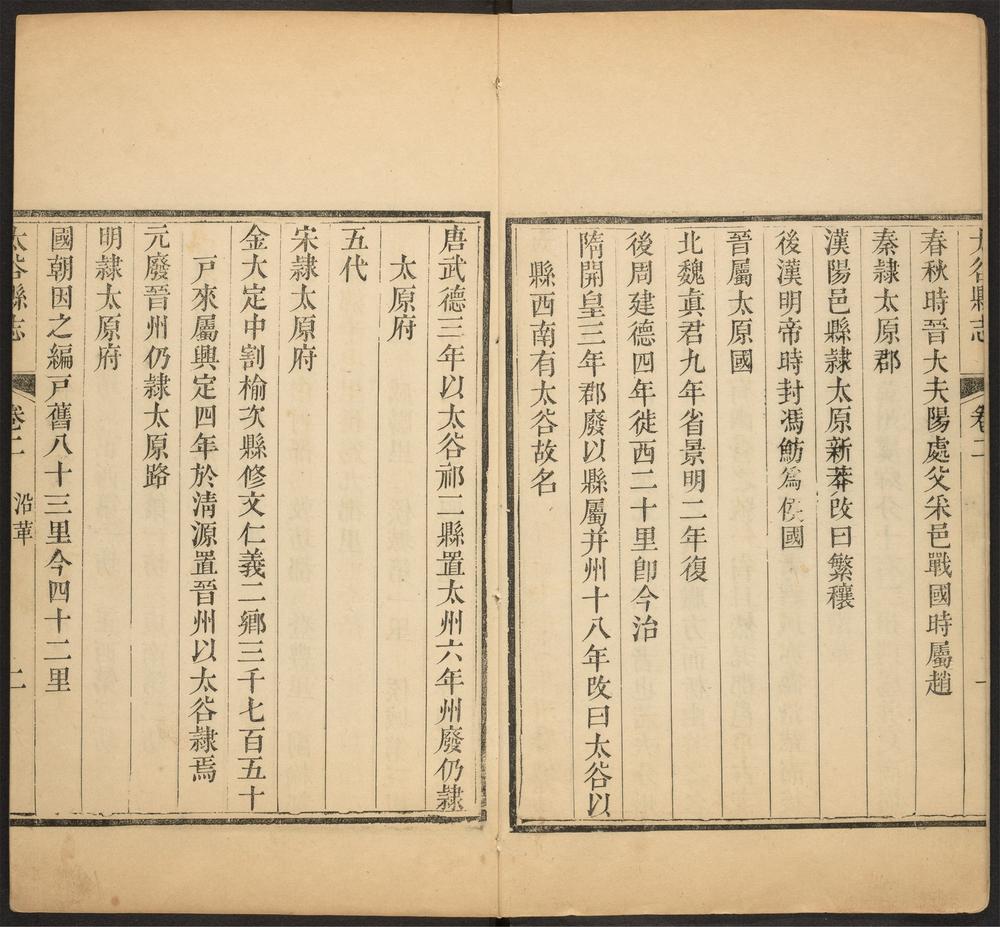 太谷縣志
卷二
一
春秋時晉大夫陽處父采邑戰國時屬趙
秦隸太原郡
漢陽邑縣隸太原新莽改曰繁穰
後漢明帝時封馮魴爲侯國
晉屬太原國
北魏眞君九年省景明二年復
後周建德四年徙西二十里卽今治
隋開皇三年郡廢以縣屬并州十八年改曰太谷以
縣西南有太谷故名
唐武德三年以太谷祁二縣置太州六年州廢仍隸
太原府
五代
宋隸太原府
金大定中割榆次縣修文仁義二鄉三千七百五十
戸來屬興定四年於淸源置晉州以太谷隸焉
元廢晉州仍隸太原路
明隸太原府
國朝因之編戸舊八十三里今四十二里
太谷縣志
卷二
沿革
二